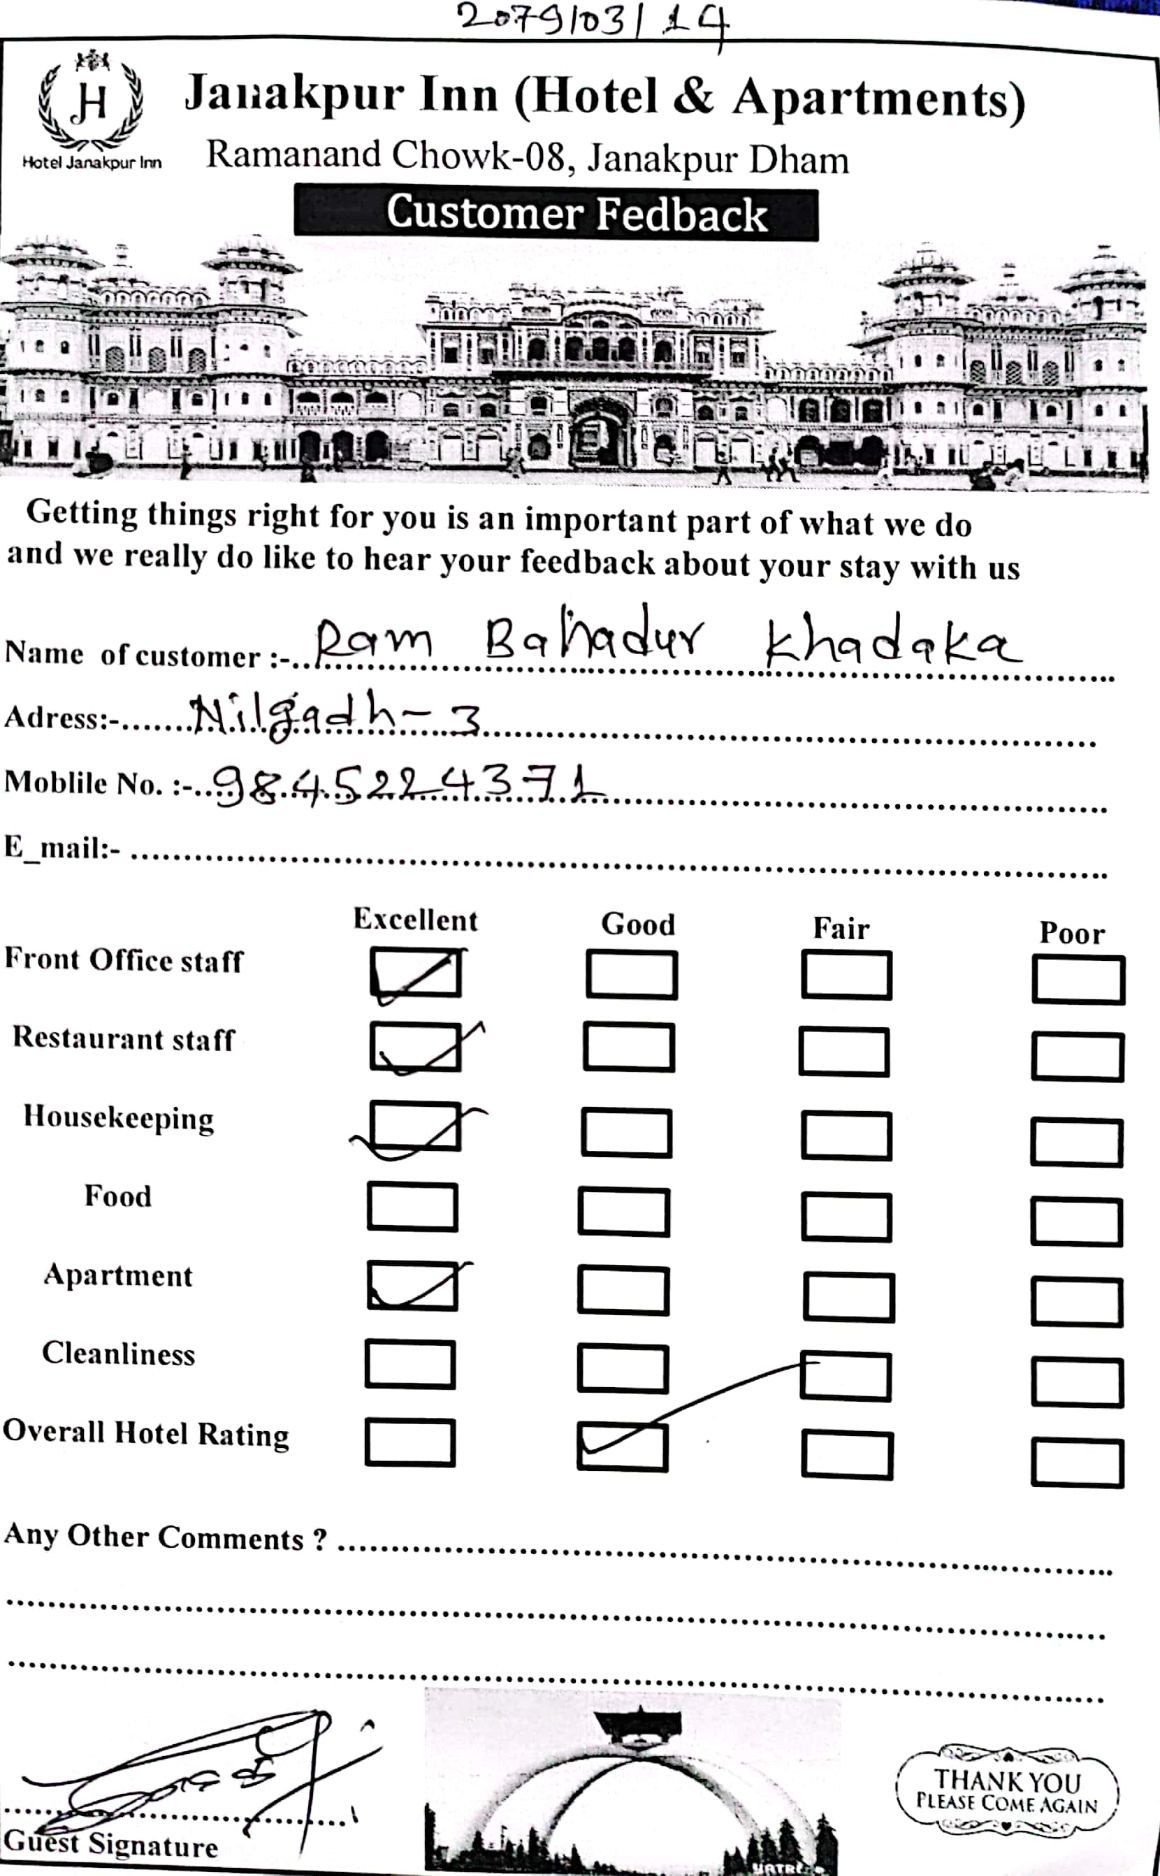 2079/03/14
Janakpur Inn (Hotel & Apartments)
Hotel Janakpur Inn
Ramanand Chowk-08, Janakpur Dham
Customer Fedback
Getting things right for you is an important part of what we do
and we really do like to hear your feedback about your stay with us
Name of customer :- Ram Bahadur Khadaka
Adress:- Nilgadh-3
Moblile No. :- 9845224371
E_mail:-
Excellent Good Fair Poor
Front Office staff
Restaurant staff
Housekeeping
Food
Apartment
Cleanliness
Overall Hotel Rating
Any Other Comments ?
Guest Signature
THANK YOU
PLEASE COME AGAIN